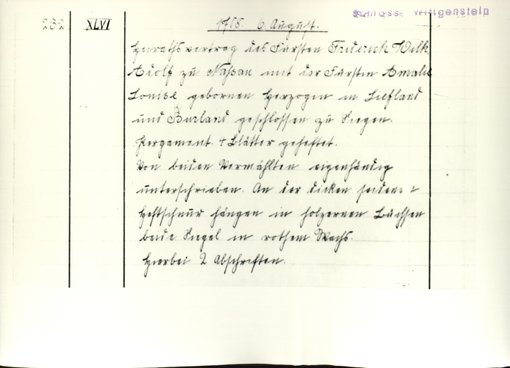 Schloss Wittgenstein
282 XLVI 1708 6 August.
Heirathsvertrag des Fürsten Friderich Wilh.
Adolf zu Nassau mit der Fürstin Amalie
Louise gebornen Herzogin in Liefland
und Curland geschlossen zu Siegen.
Pergament 4 Blätter geheftet.
Von beiden Vermählten eigenhändig
unterschrieben. An der dicken seidene
Heftschnur hängen in holzernen Büchsen
beide Siegel in rothem Wachs.
Hierbei 2 Abschriften.